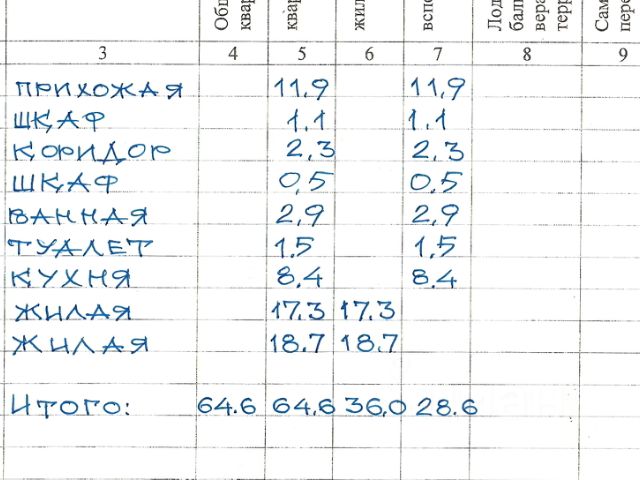 Об
квар
квар
жил
всп
Лод
бал
вера
терр
Сам
пере
3 4 5 6 7 8 9
ПРИХОЖАЯ 11,9 11,9
ШКАФ 1.1 1.1
КОРИДОР 2,3 2,3
ШКАФ 0,5 0.5
ВАННАЯ 2,9 2,9
ТУАЛЕТ 1,5 1,5
КУХНЯ 8,4 8.4
ЖИЛАЯ 17.3 17.3
ЖИЛАЯ 18.7 18.7
ИТОГО: 64.6 64.6 36,0 28.6